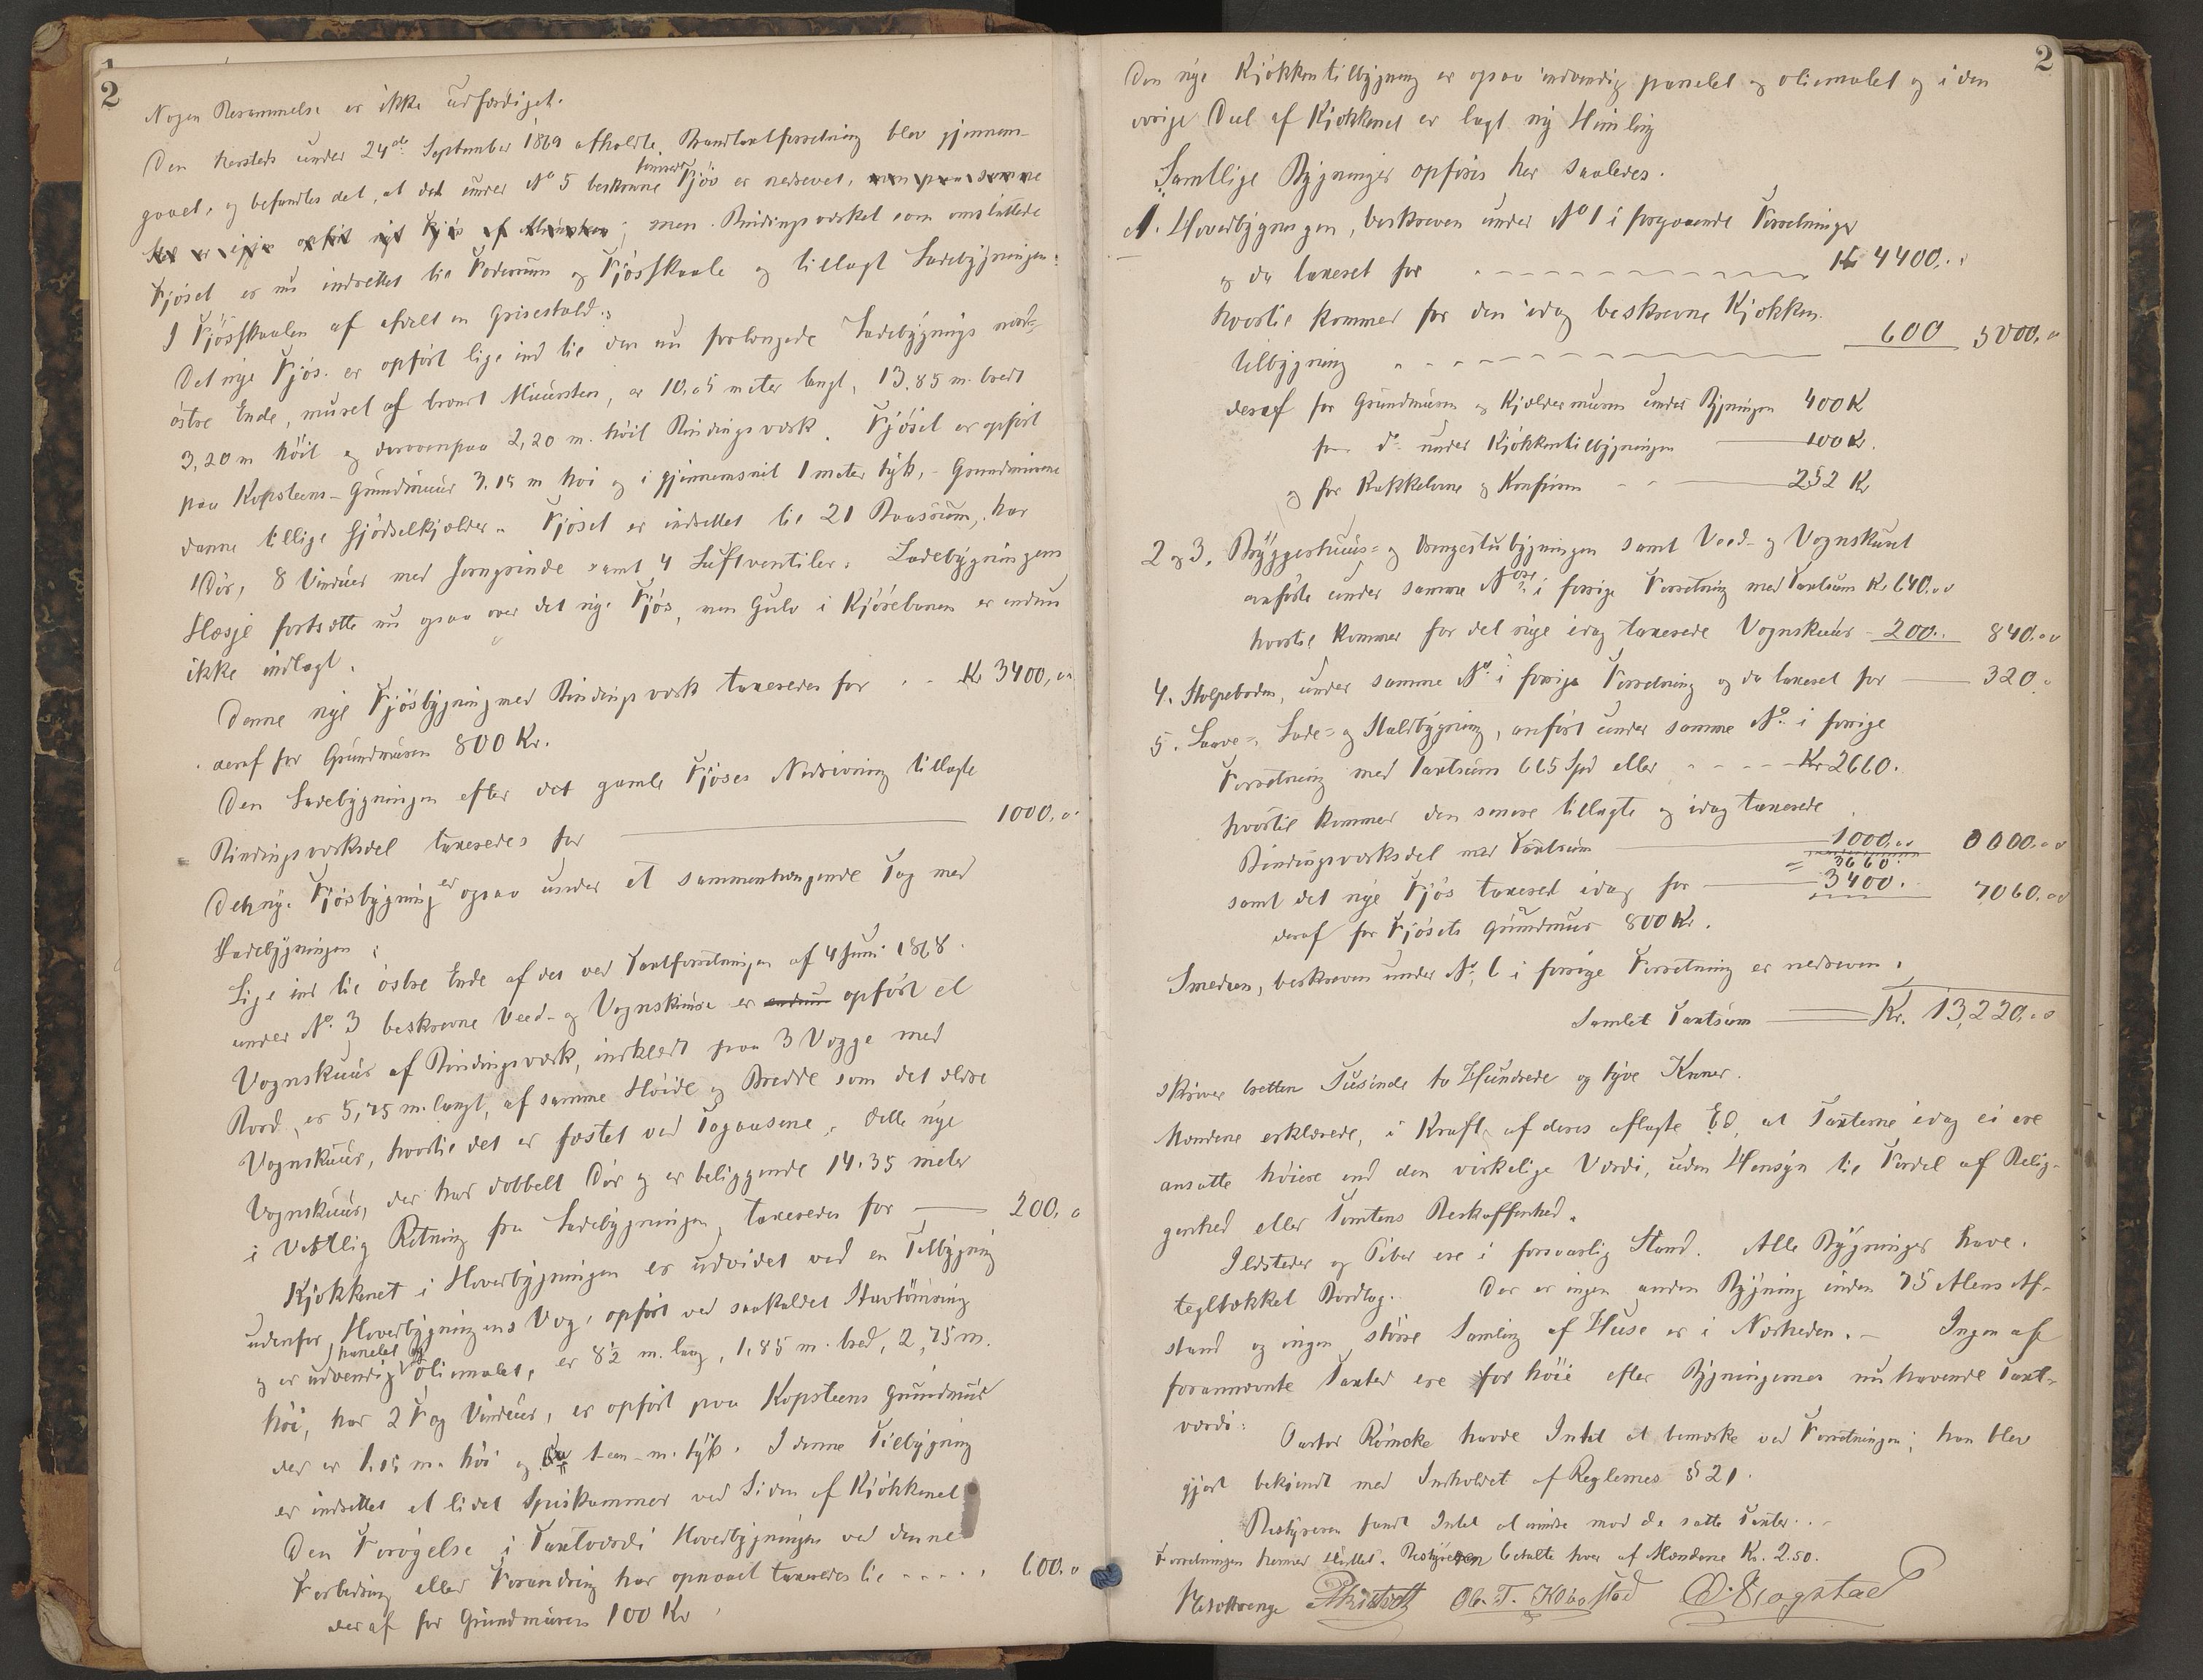 2
Nogen Berammelse er ikke udfærdiget.
Den herstede under 24de September 1869 afholdte Brandtaxtforretning blev gjennem-
gaaet, og befandtes det, at det under No 5 beskrevne tømrede Fjös er nedrevet,
men Bindingsværket som omsluttede
Fjöset er nu indrettet til Foderrum og Fjösskaale og tillagt Ladebygningen.
I Fjösskaalen af afdelt en Grisestald.
Det nye Fjös er opfört lige ind til den nu forlængede Ladebygnings nord-
östre Ende, muret af brændt Muursten, er 10,05 meter langt, 13,85 m. bredt
3,20 m höit og derovenpaa 2,20 m. höit Bindingsværk. Fjöset er opfört
paa Kopsteens-Grundmuur 3.15 m höi og i gjennemsnit 1 meter tyk, - Grundmurene
danne tillige Gjödselkjælder. Fjöset er indrettet til 21 Baasrum, har
1 Dör, 8 Vinduer med Jerngrinde samt 4 Luftventiler. Ladebygningens
Hæsje fortsætte nu ogsaa over det nye Fjös, men Gulv i Kjörebanen er endnu
ikke indlagt.
Denne nye Fjösbygning med Bindingsværk taxeredes for . - Kr 3400,00
deraf for Grundmuren 800 Kr.
Den Ladebygningen efter det gamle Fjöses Nedrivning tillagte
Bindingsværksdel taxeredes for 1000.00
Den nye Fjösbygning er ogsaa under et sammenhængende Tag med
Ladebygningen.
Lige ind til östre Ende af det ved Taxtforretningen af 4 Juni 1868
under No. 3 beskrevne Veed- og Vognskuur er endnu opfört et
Vognskuur af Bindingsværk, indklædt paa 3 Vægge med
Bord, er 5,75 m. langt, af samme Höide og Bredde som det ældre
Vognskuur, hvortil det er fæstet ved Tagaasene. Dette nye
Vognskuur, der har dobbelt Dör og er beliggende 14.35 meter
i vestlig Retning fra Ladebygningen, taxeredes for 200.0
Kjökkenet i Hovedbygningen er udvidet ved en Tilbygning
udenfor Hovedbygningens Væg, opfört ved saakaldet Stavtömring
og er udvendig panelet og oliemalet, er 8½ m. lang, 1,85 m. bred, 2,75 m.
höi, har 2 Fag Vinduer, er opfört paa Kopsteens Grundmuur
der er 1.15 m. höi og m. tyk. I denne Tilbygning
er indrettet et lidet Spiskammer ved Siden af Kjökkenet
Den Forögelse i Taxtværdi Hovedbygningen ved denne
Forbedring eller Forandring har opnaaet taxeredes til . . . . . 600.0
deraf for Grundmuren 100 Kr
2
Den nye Kjökkentilbygning er ogsaa indvendig panelet og oliemalet og i den
övrige Deel af Kjökkenet er lagt ny Himling
Samtlige Bygninger opföres her saaledes.
1. Hovedbygningen, beskreven under No 1 i foregaaende Forretninger
og da taxeret for Kr 4400,..
hvortil kommer for den idag beskrevne Kjökken
tilbygning 600 5000,00
deraf for Grundmuren og Kjældermuren under Bygningen 400 K
for do under Kjökkentilbygningen 100 Kr.
og for Kakkelovne og Komfuren 252 Kr
2 og 3. Bryggerhuus- og Drengestubygningen samt Veed- og Vognskuret
anförte under samme Noer i forrige Forretning med Taxtsum Kr 640.00
hvortil kommer for det nye idag taxerede Vognskuur - 200.. 840.00
4. Stolpeboden, under samme No. i forrige Forretning og da taxeret for 320.0
5. Laave-, Lade- og Staldbygning, anfört under samme No. i forrige
Forretning med Taxtsum 665 Spd eller Kr 2660.
hvortil kommer den senere tillagte og idag taxerede
Bindingsværksdel med Taxtsum 1000,00 0000.00
= 3660.
samt det nye Fjös taxeret idag for 3400. 7060.00
deraf for Fjösets Grundmur 800 Kr.
Smedien, beskreven under No. 6 i forrige Forretning er nedreven.
Samlet Taxtsum Kr. 13,220,00
skriver tretten Tusinde to Hundrede og tyve Kroner.
Mændene erklærede, i Kraft af deres aflagte Ed, at Taxterne idag ei ere
ansatte höiere end den virkelige Værdi, uden Hensyn til Fordel af Belig-
genhed eller Tomtens Beskaffenhed.
Ildsteder og Piber ere i forsvarlig Stand. Alle Bygninger have
tegltækket Bordtag. Der er ingen anden Bygning inden 75 Alens Af-
stand og ingen större Samling af Huse er i Nærheden. - Ingen af
forannævnte Taxter ere for höie efter Bygningernes nuhavende Taxt-
værdi.
Pastor Römcke havde Intet at bemærke ved Forretningen; han blev
gjort bekjendt med Indholdet af Reglernes § 21.
Bestyreren fandt Intet at erindre mod de satte Taxter. -
Forretningen hermed sluttet. Bestyreren betalte hver af Mændene Kr. 2.50.
Ol. T. Klöostad O. Krogstad